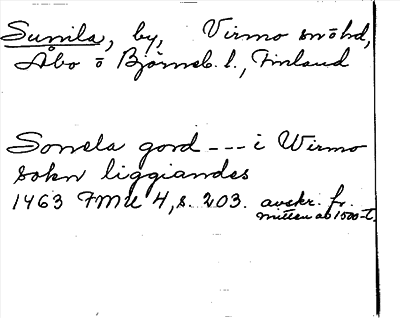 Sunila, by, Virmo sn o hd,
Åbo o Björneb. l., Finland
Sonela gord --- i Wirmo
sokn liggiandes
1463 FMU 4, s. 203. avskr. fr.
mitten av 1500-t.